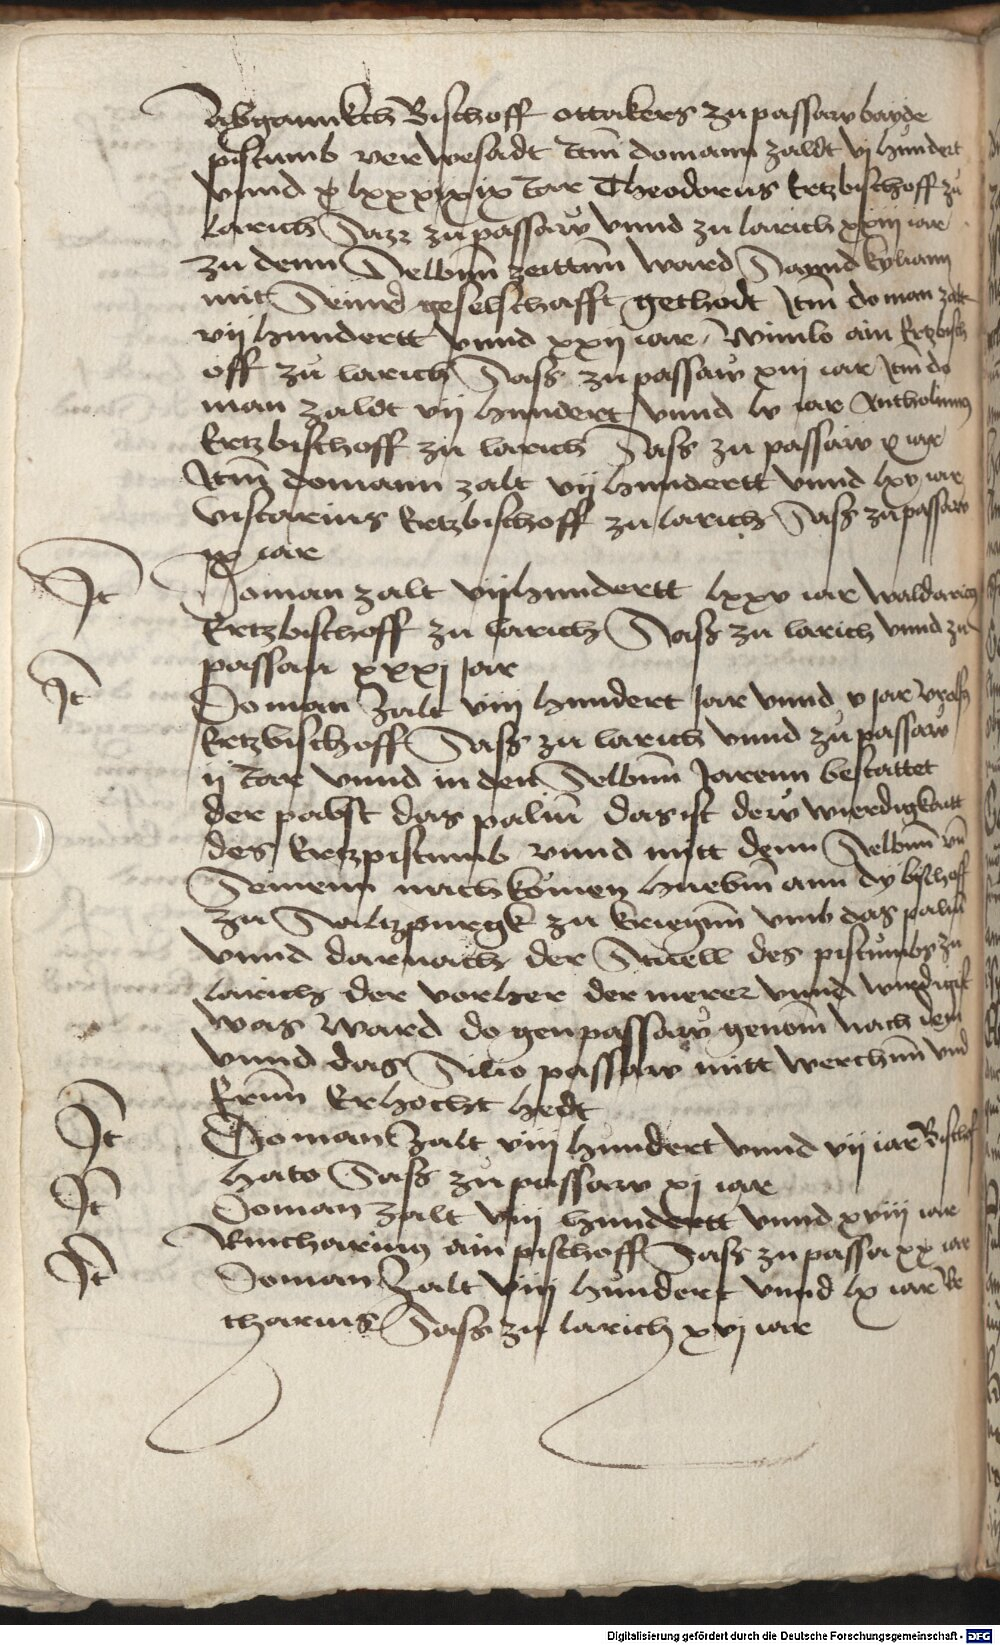 Abganckch Bischoff ottakers zu passaw bayde
pistumb verwesadt Itm̄ domann zaldt vj hundert
vnnd lxxxxix Iar Theodorus Ertzbischoff zu
larich Sazz zu passaw vnnd zu larich xxiij iar
zu denn Selbnn̄ zeittnn̄ ward Sannd kyliann
mit Seiner geselschafft gethodt Itm̄ do man zalt
vij hundertt vnnd xxij iar vinilo ain Ertzbisch
off zu larich Sass zu passaw xiij iar Itm̄ do
man zaldt vij hundert vnnd lv iar Antholinus
Ertzbischoff zu larich Sass zu passaw x iar
Itm̄ domann zalt vij hundertt vnnd lxv iar
viscarius Ertzbischoff zu larich Sass zu passaw
ix iar
It Doman zalt vij hundertt lxxv iar waldaricus
Ertzbischoff zu larich Sass zu larich vnnd zu
passau xxxj Jar
It Do man zalt viij hundert Jar vnnd v Jar vrolff
Ertzbischoff Sass zu larich vnnd zu passaw
ij Iar vnnd in den Selbnn̄ Jarenn bestattet
der pabst das palm̄ das ist dew wierdigkaitt
des Ertzpistumb vnnd mitt denn Selbnn̄ vn̄
Seinenn nachkomen huebm̄ ann dy bischoff
zu Saltzpurgk zu kriegnn̄ vmb das palm̄
vnnd darnach der Stuell des pistumbs zu
larich der vorher der merer vnnd wirdigist
was ward do gen passaw genom̄ nach dem
vnnd das Silio passaw mitt werchnn̄ vnd
Ernn̄ Erhocht hedt
It Do man zalt viij hundert vnnd vij iar Bischof
hato Sass zu passaw xj iar
It Doman zalt viij hundertt vnnd xviij iar
Rincharius ain pischoff Sass zu passa xx iar
It Doman zalt viij hundert vnnd lx iar Re
tharius Sass zu larich xvj iar
Digitalisierung gefördert durch die Deutsche Forschungsgemeinschaft - DFG